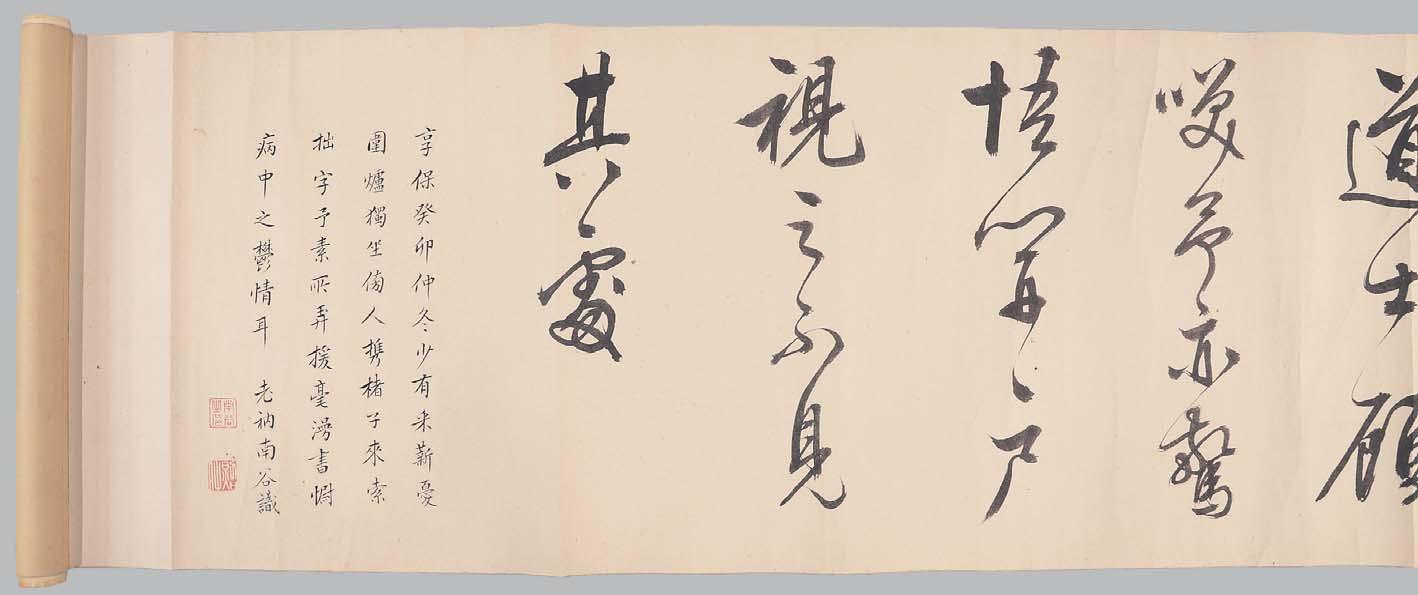 道士顧
咲予亦驚
悟開戶
視之不見
其處
享保癸卯仲冬少有采薪憂
圍爐獨坐傍人携楮子來索
拙字予素所弄援毫漫書慰
病中之鬱情耳　老衲南谷識